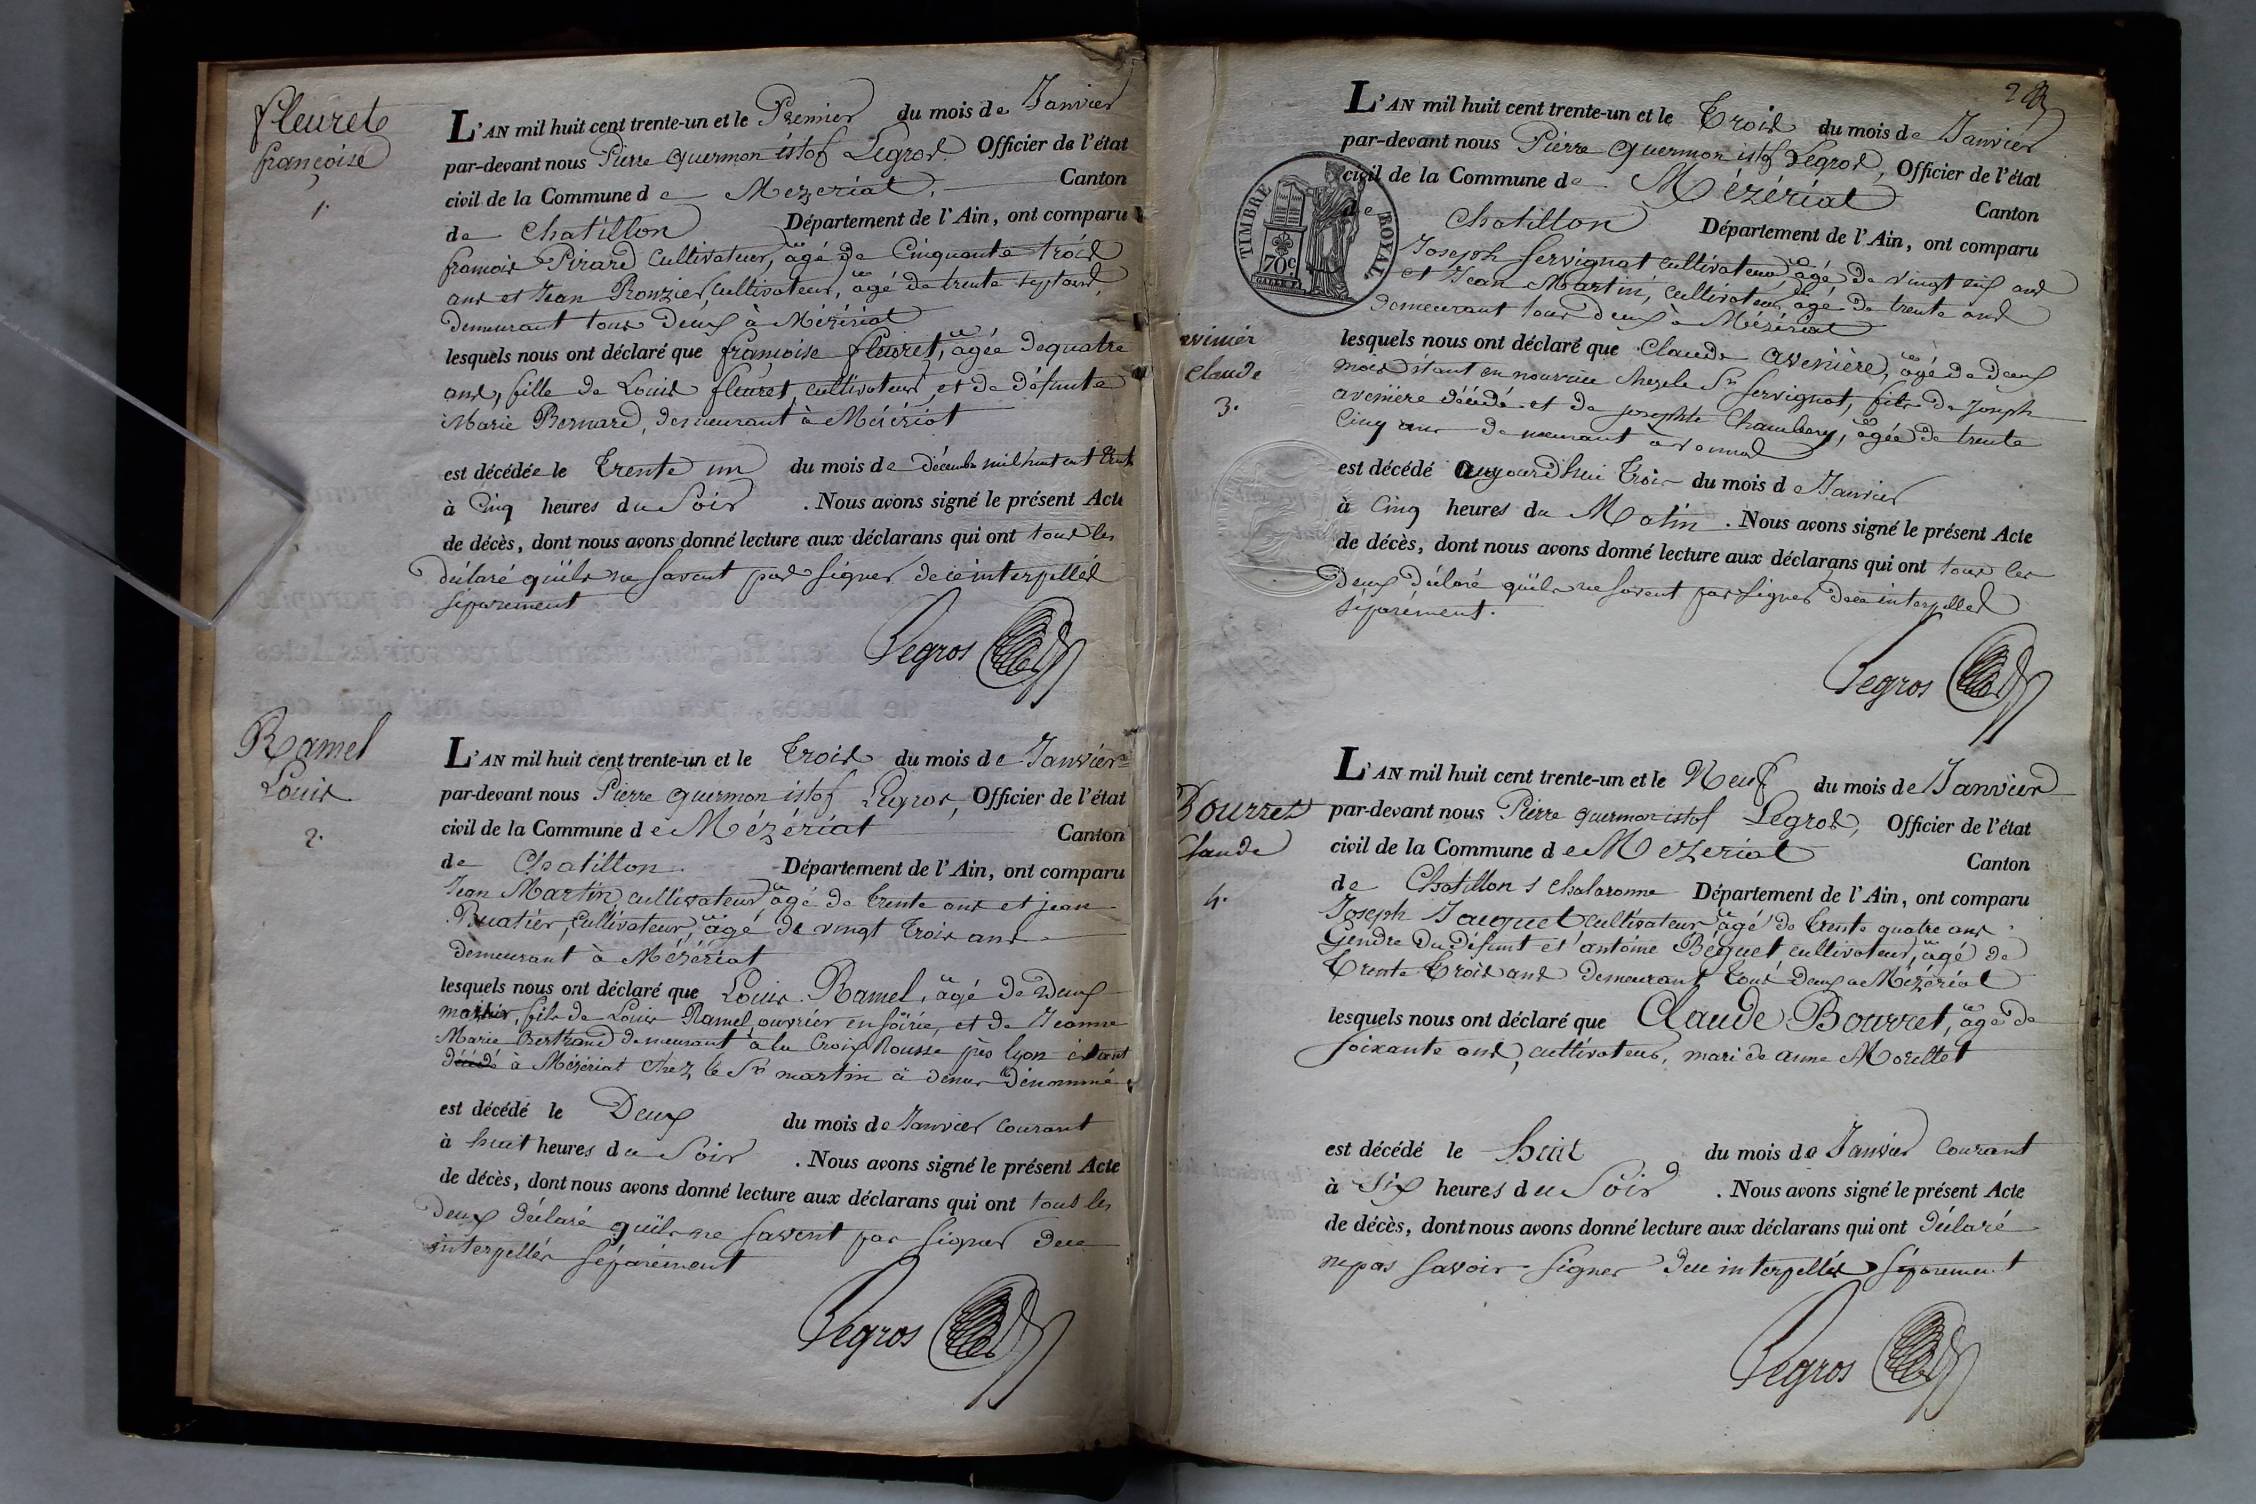 fleuret
françoise
1.
L'AN mil huit cent trente-un et le Premier du mois de Janvier
par-devant nous Pierre Guermon istof Legros Officier de l'état
civil de la Commune de Mezeriat, Canton
de Chatillon Département de l'Ain, ont comparu
françois Pirard cultivateur, agé de Cinquante trois
ans et Jean Ronzier, cultivateur, agé de trente sept ans,
demeurant tous deux à Mézériat
lesquels nous ont déclaré que françoise fleuret, agée de quatre
ans, fille de Louis fleuret, cultivateur, et de défunte
Marie Bernard, demeurant à Mézériat
est décédée le trente un du mois de décembre mil huit cent trente
à Cinq heures du Soir . Nous avons signé le présent Acte
de décès, dont nous avons donné lecture aux déclarans qui ont tous les
déclaré qu'ils ne savent pas signer de ce interpellés
séparement
Legros
Ramel
Louis
2.
L'AN mil huit cent trente-un et le trois du mois de Janvier
par-devant nous Pierre Guermon istof Legros, Officier de l'état
civil de la Commune de Mézériat Canton
de Chatillon Département de l'Ain, ont comparu
Jean Martin, cultivateur agé de trente ans et jean
Ruatier, cultivateur, agé de vingt trois ans
demeurant à Mézériat
lesquels nous ont déclaré que Louis Ramel, agé de Deux
fils de Louis Ramel, ouvrier en soirie, et de Jeanne
Marie Bertrand demeurant à la Croix Rousse près lyon étant
décédé à Mézériat chez le Sr martin ci denur Dénommé
est décédé le Deux du mois de Janvier courant
à huit heures du Soir . Nous avons signé le présent Acte
de décès, dont nous avons donné lecture aux déclarans qui ont tous les
deux déclaré qu'ils ne savent pas signer de ce
interpellés séparément
Legros
2
L'AN mil huit cent trente-un et le trois du mois de Janvier
par-devant nous Pierre Guermon istof Legros, Officier de l'état
civil de la Commune de Mézériat Canton
de Chatillon Département de l'Ain, ont comparu
TIMBRE ROYAL
70c
Joseph Servignat cultivateur, agé de vingt six ans
et Jean Martin, cultivateur agé de trente ans
demeurant tous deux à Mézériat
vinier
Claude
3.
lesquels nous ont déclaré que Claude avenière, agé de deux
mois étant en nourrice chez le Sr Servignat, fils de Joseph
avenière décédé et de josephte Chambery, agée de trente
Cinq ans demeurant à vonnas
est décédé aujourd'hui trois du mois de Janvier
à Cinq heures du Matin . Nous avons signé le présent Acte
de décès, dont nous avons donné lecture aux déclarans qui ont tous les
deux déclaré qu'ils ne savent pas signer de ce interpellés
séparément.
Legros
Bourret
Claude
4.
L'AN mil huit cent trente-un et le Neuf du mois de Janvier
par-devant nous Pierre Guermon istof Legros, Officier de l'état
civil de la Commune de Mezeriat Canton
de Chatillon s chalaronne Département de l'Ain, ont comparu
Joseph Jacquet cultivateur agé de trente quatre ans
Gendre du défunt et antoine Béguet, cultivateur, agé de
trente trois ans demeurant tous deux à Mézériat
lesquels nous ont déclaré que Claude Bourret, agé de
soixante ans, cultivateur, mari de anne Morellet
est décédé le huit du mois de Janvier courant
à Six heures du Soir . Nous avons signé le présent Acte
de décès, dont nous avons donné lecture aux déclarans qui ont déclaré
ne pas savoir signer de ce interpellés séparement
Legros